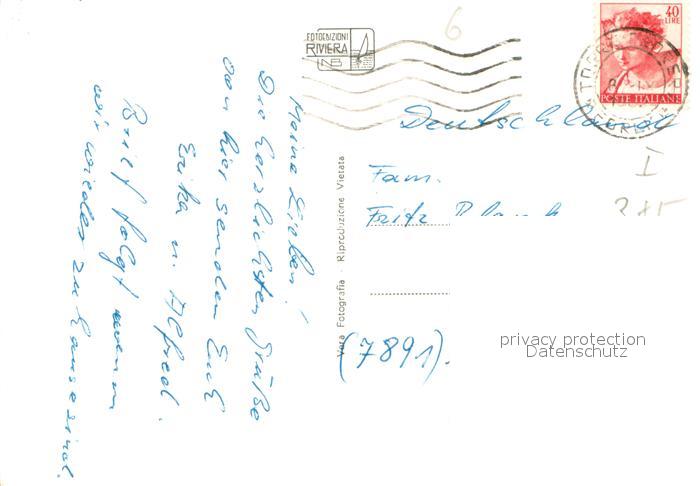 Meine Lieben!
Die herzlichsten Grüße
von hier senden Euch
Erika u. Alfred.
Brief folgt wenn
wir wieder zu Hause sind.
6
FOTOEDIZIONI
RIVIERA
40
LIRE
POSTE ITALIANE
Deutschland
Fam.
Fritz
I
285
(7891).
Vera Fotografia - Riproduzione Vietata
privacy protection
Datenschutz